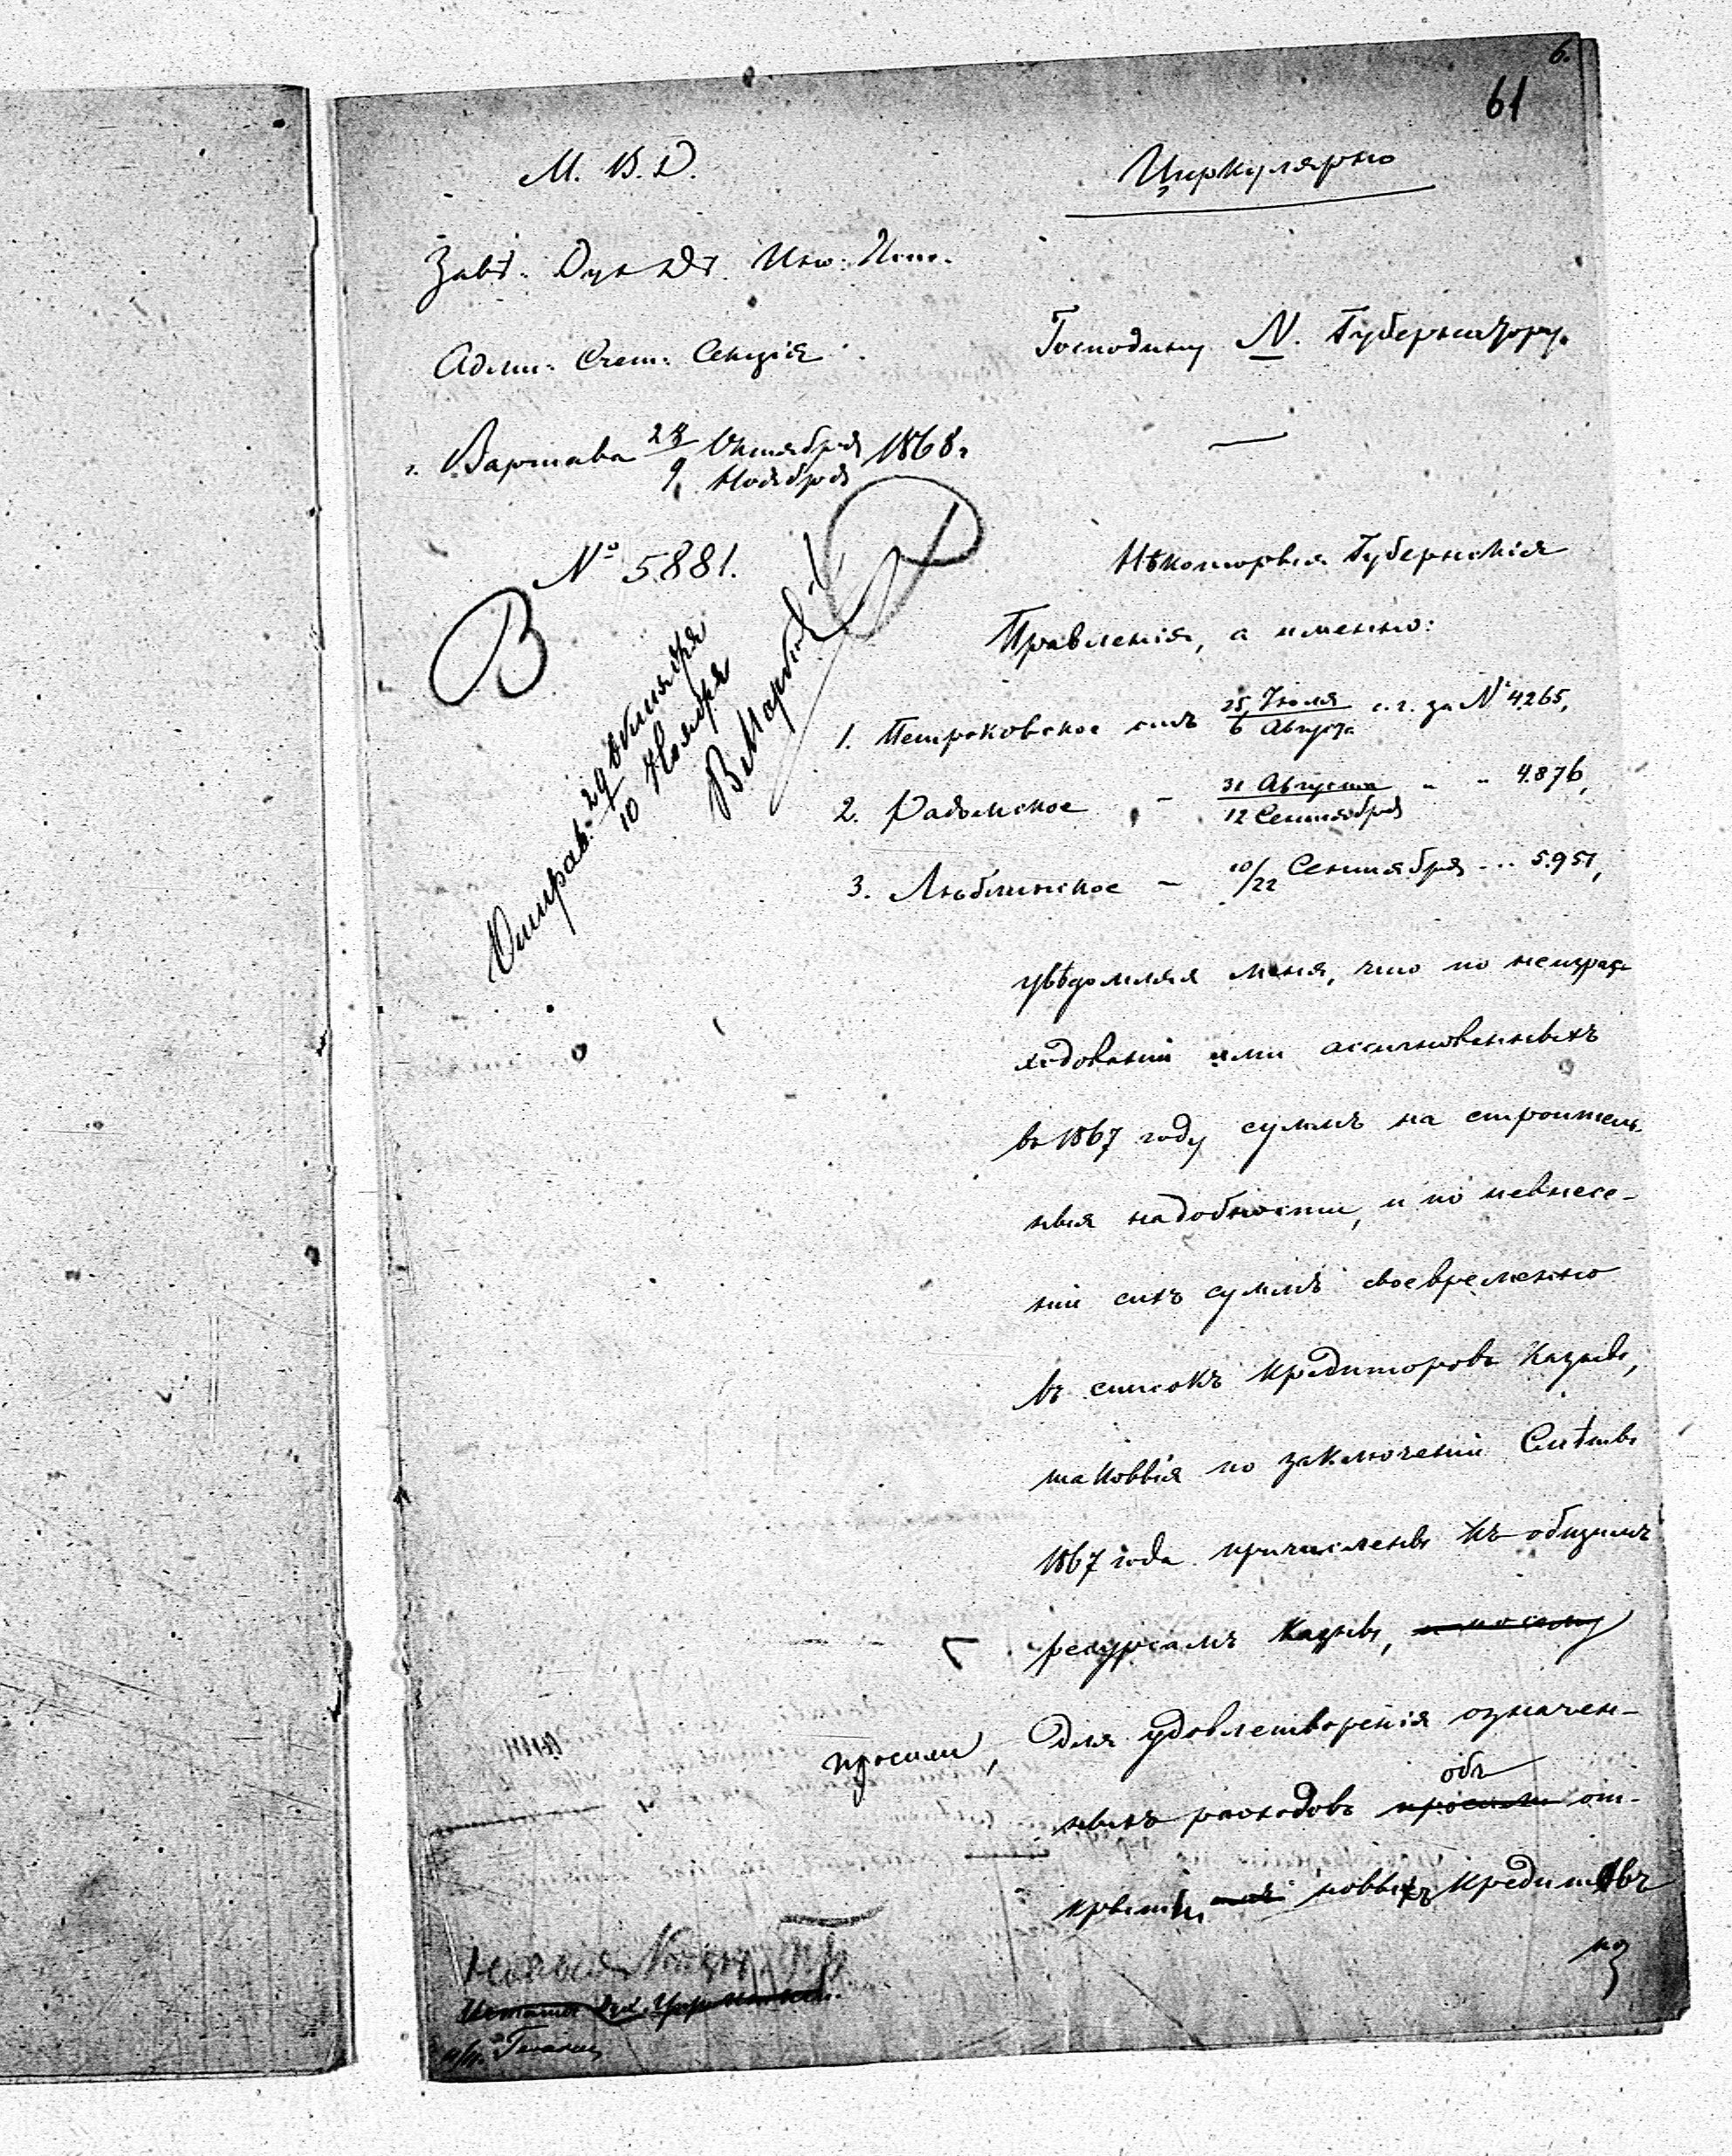 6.
61
М. В. Д.
Циркулярно
Завѣ. Дух. Дѣ. Ин. Исп.
Адми: Счет: Секція
Господину N. Губернатору.
г. Варшава 28/9 Октября/Ноября 1868 г.
№ 5881.
В
Отправ. 29 Октября
10 Ноября
Нѣкоторыя Губернскія
Правленія, а именно:
1. Петроковское отъ 25 Іюля/6 Августа с. г. за № 4265,
2. Радомское – 31 Августа/12 Сентября " " 4.876,
3. Люблинское – 10/22 Сентября - ... 5.951,
увѣдомляя меня, что по неизрас
ходованіи ими ассигнованныхъ
въ 1867 году суммъ на строитель-
ныя надобности, и по невнесе-
ніи сихъ суммъ своевременно
въ списокъ кредиторовъ Казны,
таковыя по заключеніи Смѣты
1867 года причислены къ общимъ
ресурсамъ Казны, и посему
просили, для удовлетворенія означен-
ныхъ расходовъ просили объ от-
крытіи новыхъ кредитовъ
по